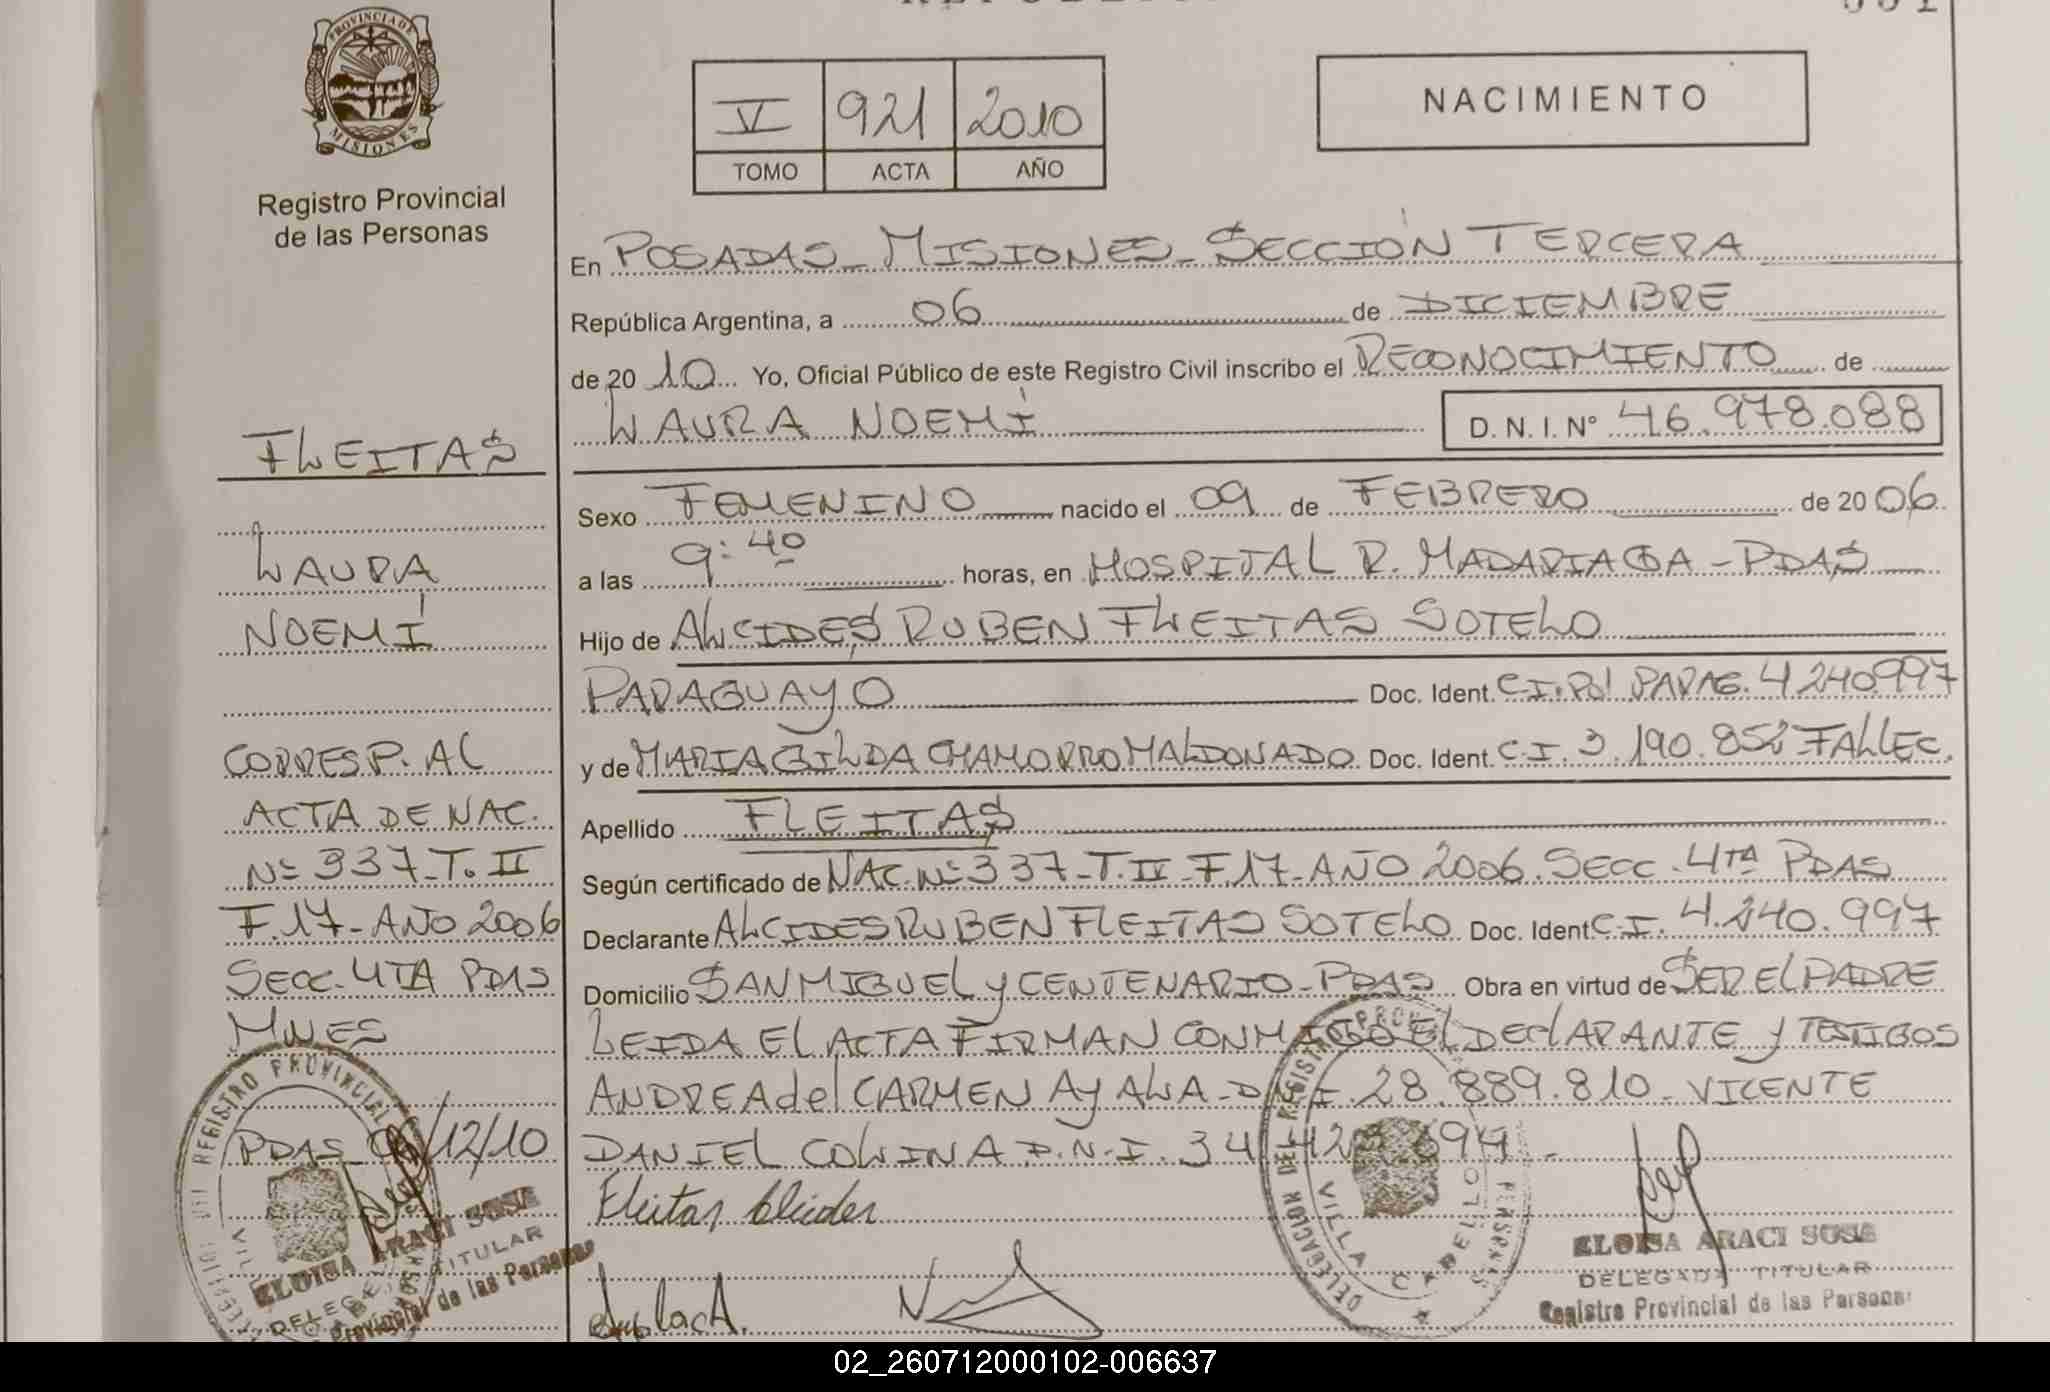 PROVINCIA DE
MISIONES
Registro Provincial
de las Personas
FLEITAS
LAURA
NOEMÍ
CORRESP. AL
ACTA DE NAC.
Nº 337-T. II
F.17- AÑO 2006
SECC. 4TA PDAS
MNES
PDAS 06/12/10
ELOISA ARACI SOSA
DELEGADA TITULAR
Provincial de las Personas
V 921 2010
TOMO ACTA AÑO
NACIMIENTO
En POSADAS - MISIONES - SECCIÓN TERCERA
República Argentina, a 06 de DICIEMBRE
de 2010 Yo, Oficial Público de este Registro Civil inscribo el RECONOCIMIENTO de
LAURA NOEMÍ D. N. I. Nº 46.978.088
Sexo FEMENINO nacido el 09 de FEBRERO de 2006
a las 9:40 horas, en HOSPITAL R. MADARIAGA - PDAS
Hijo de ALCIDES RUBEN FLEITAS SOTELO
PARAGUAYO Doc. Ident. C.I. Pol PARAG. 4240997
y de MARIA GILDA CHAMORRO MALDONADO Doc. Ident. C.I. 3.190.852 FALLEC.
Apellido FLEITAS
Según certificado de NAC. Nº 337-T. II - F.17- AÑO 2006. SECC. 4TA PDAS
Declarante ALCIDES RUBEN FLEITAS SOTELO Doc. Ident C.I. 4.240.997
Domicilio SAN MIGUEL Y CENTENARIO - PDAS Obra en virtud de SER EL PADRE
LEIDA EL ACTA FIRMAN CONMIGO EL DEClARANTE y TESTIGOS
ANDREA del CARMEN AyALA - D.N.I. 28.889.810 - VICENTE
DANIEL COLINA D.N.I. 34
Fleitas Alcides
DELEGACION DEL REGISTRO PROV
VILLA CABELLO
ELOISA ARACI SOSA
DELEGADA TITULAR
Registro Provincial de las Personas
02_260712000102-006637